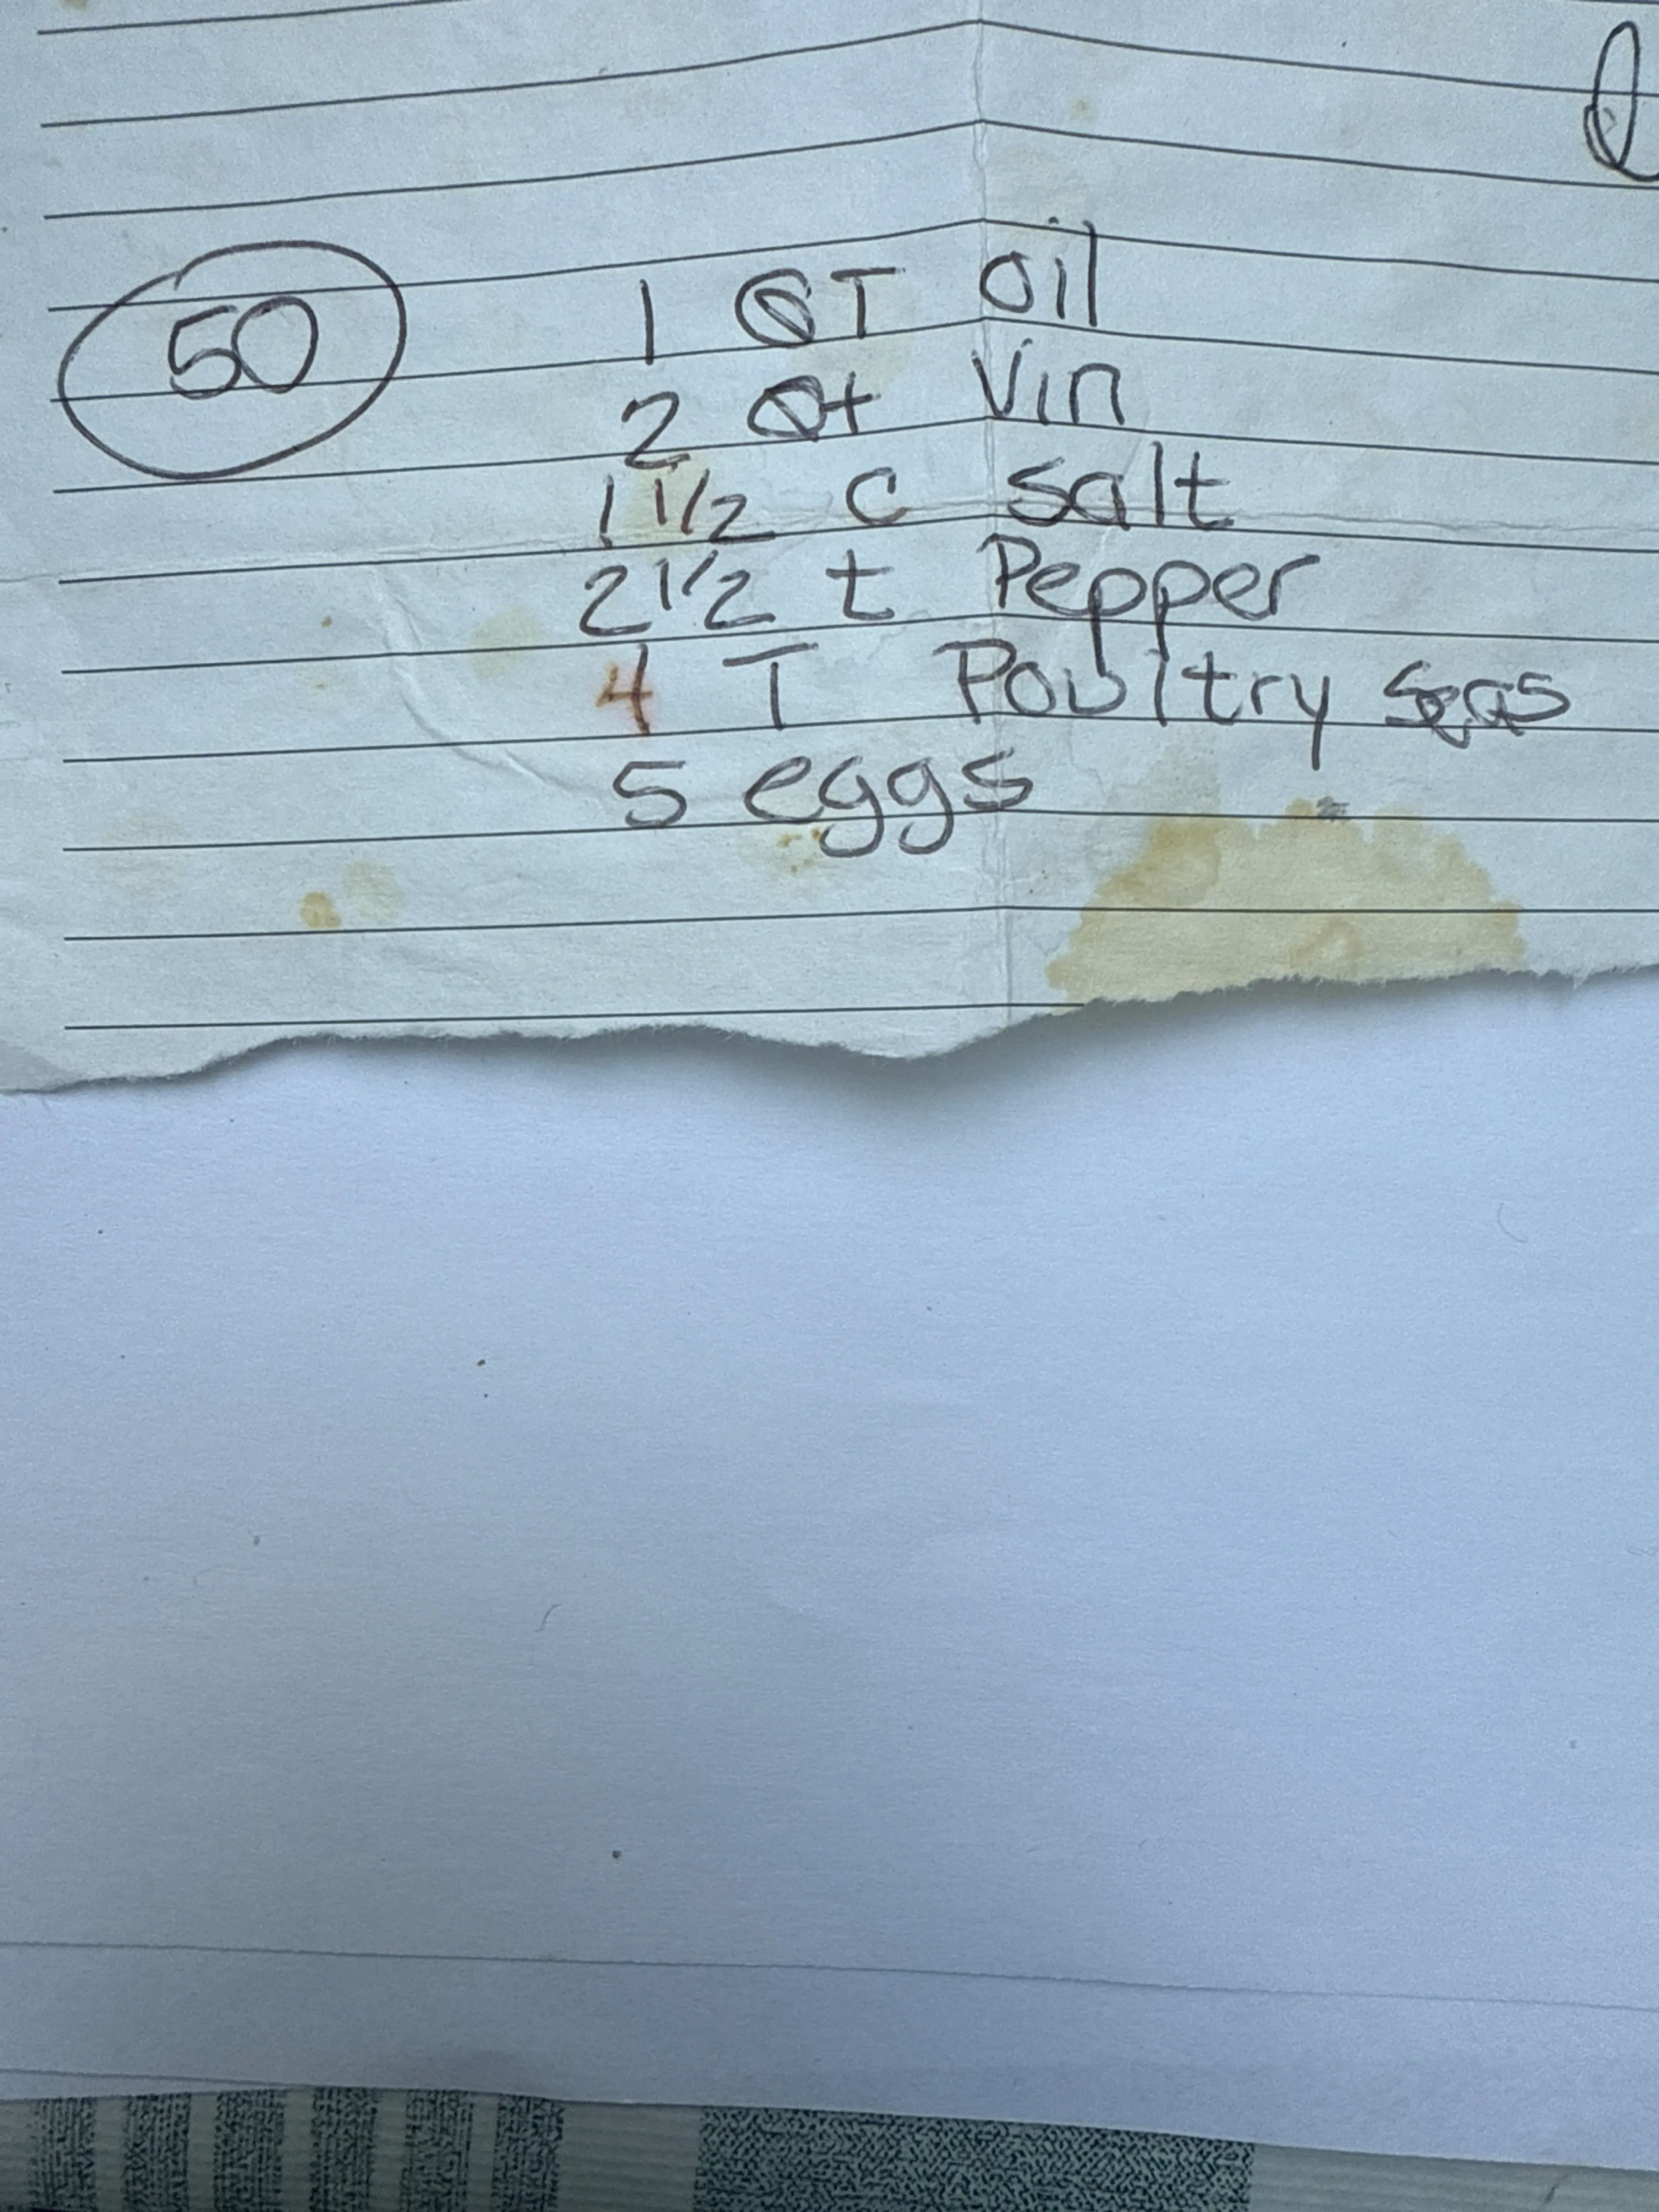 50
1 QT oil
2 Qt Vin
1 1/2 c salt
2 1/2 t Pepper
4 T Poultry Seas
5 eggs